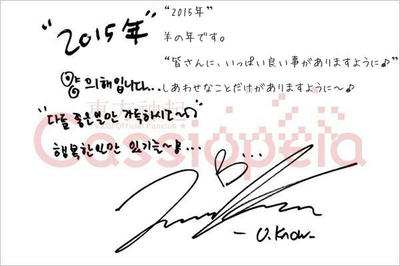 “2015年”
“2015年”
羊の年です。
“皆さんに、いっぱい良い事がありますように♪”
しあわせなことだけがありますように～♪
양 의해입니다...
“다들 좋은일만 가득하시길~♪”
행복한일만 있기를~♪...
東方神起
Official Fanclub
Cassiopeia
B...
- U.Know -